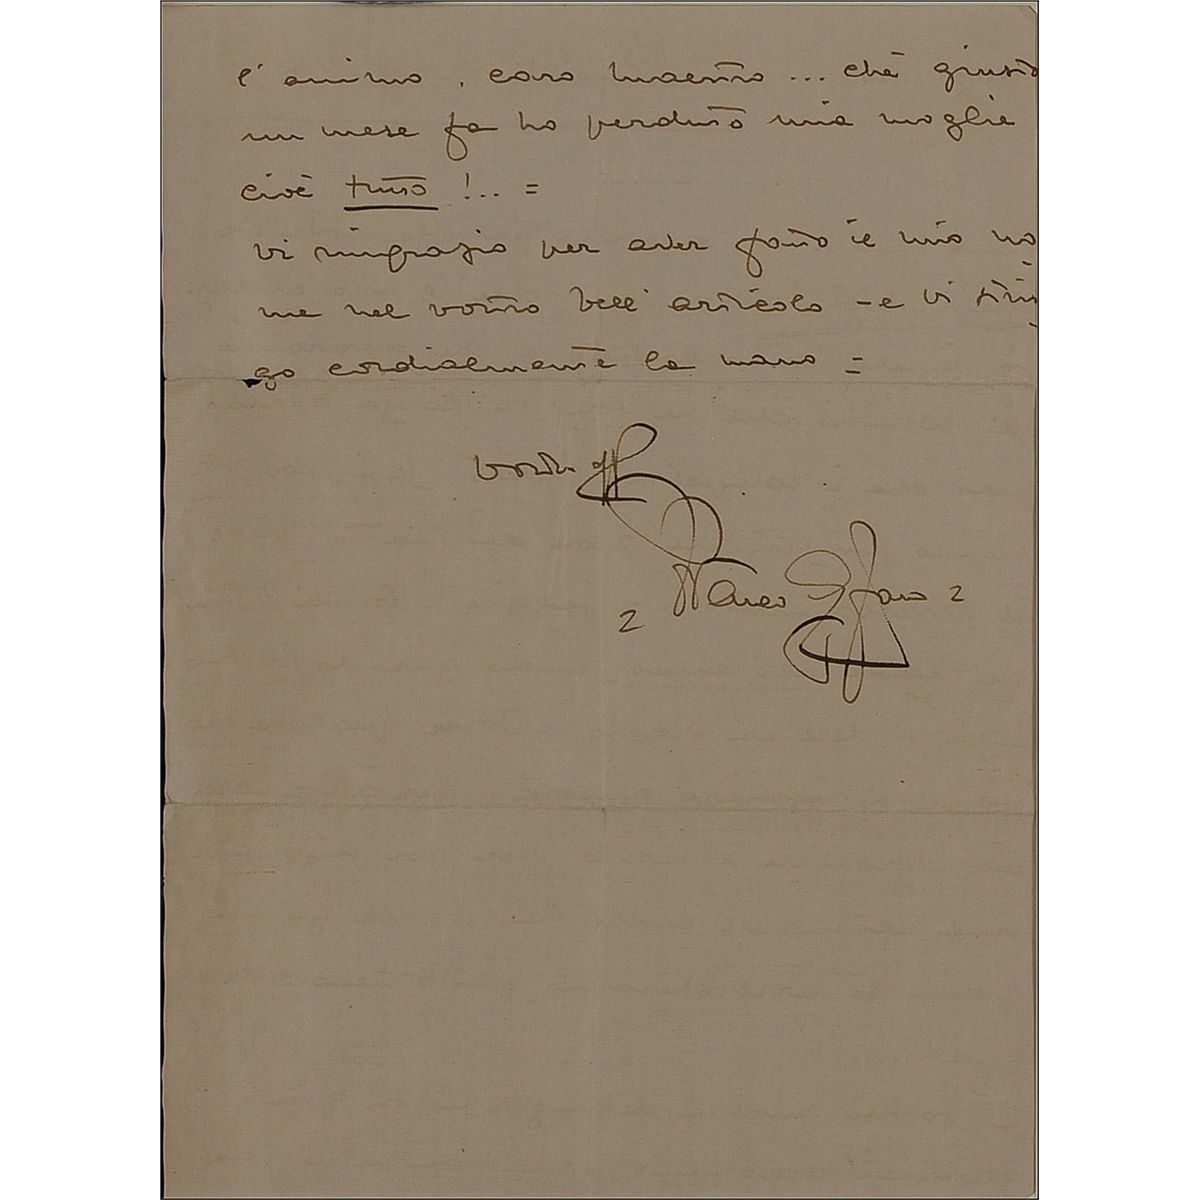 l'animo, caro Maestro ... chè giusto
un mese fa ho perduto mia moglie
cioè tutto !.. =
Vi ringrazio per aver fatto il mio no
me nel vostro bell'articolo - e vi strin
go cordialmente la mano =
vostro